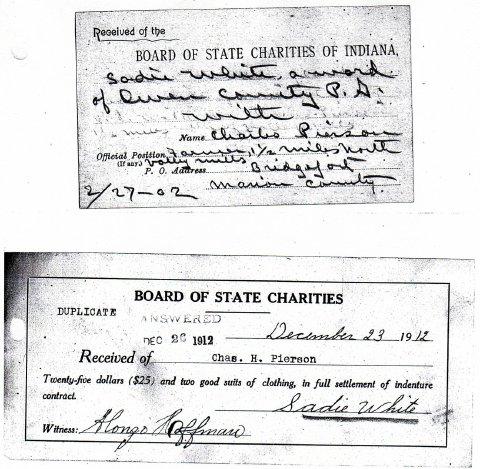 Received of the
BOARD OF STATE CHARITIES OF INDIANA,
Sadie White, a ward
of Owen County P. A.
with
Name Charles Pierson
Official Position Farmer, 1½ miles North
(If any) Valley Mills
P. O. Address Bridgeport
2/27-02 Marion County.
BOARD OF STATE CHARITIES
DUPLICATE
ANSWERED
DEC 26 1912
December 23 1912
Received of Chas. H. Pierson
Twenty-five dollars ($25) and two good suits of clothing, in full settlement of indenture
contract.
Sadie White
Witness: Alonzo Hoffman